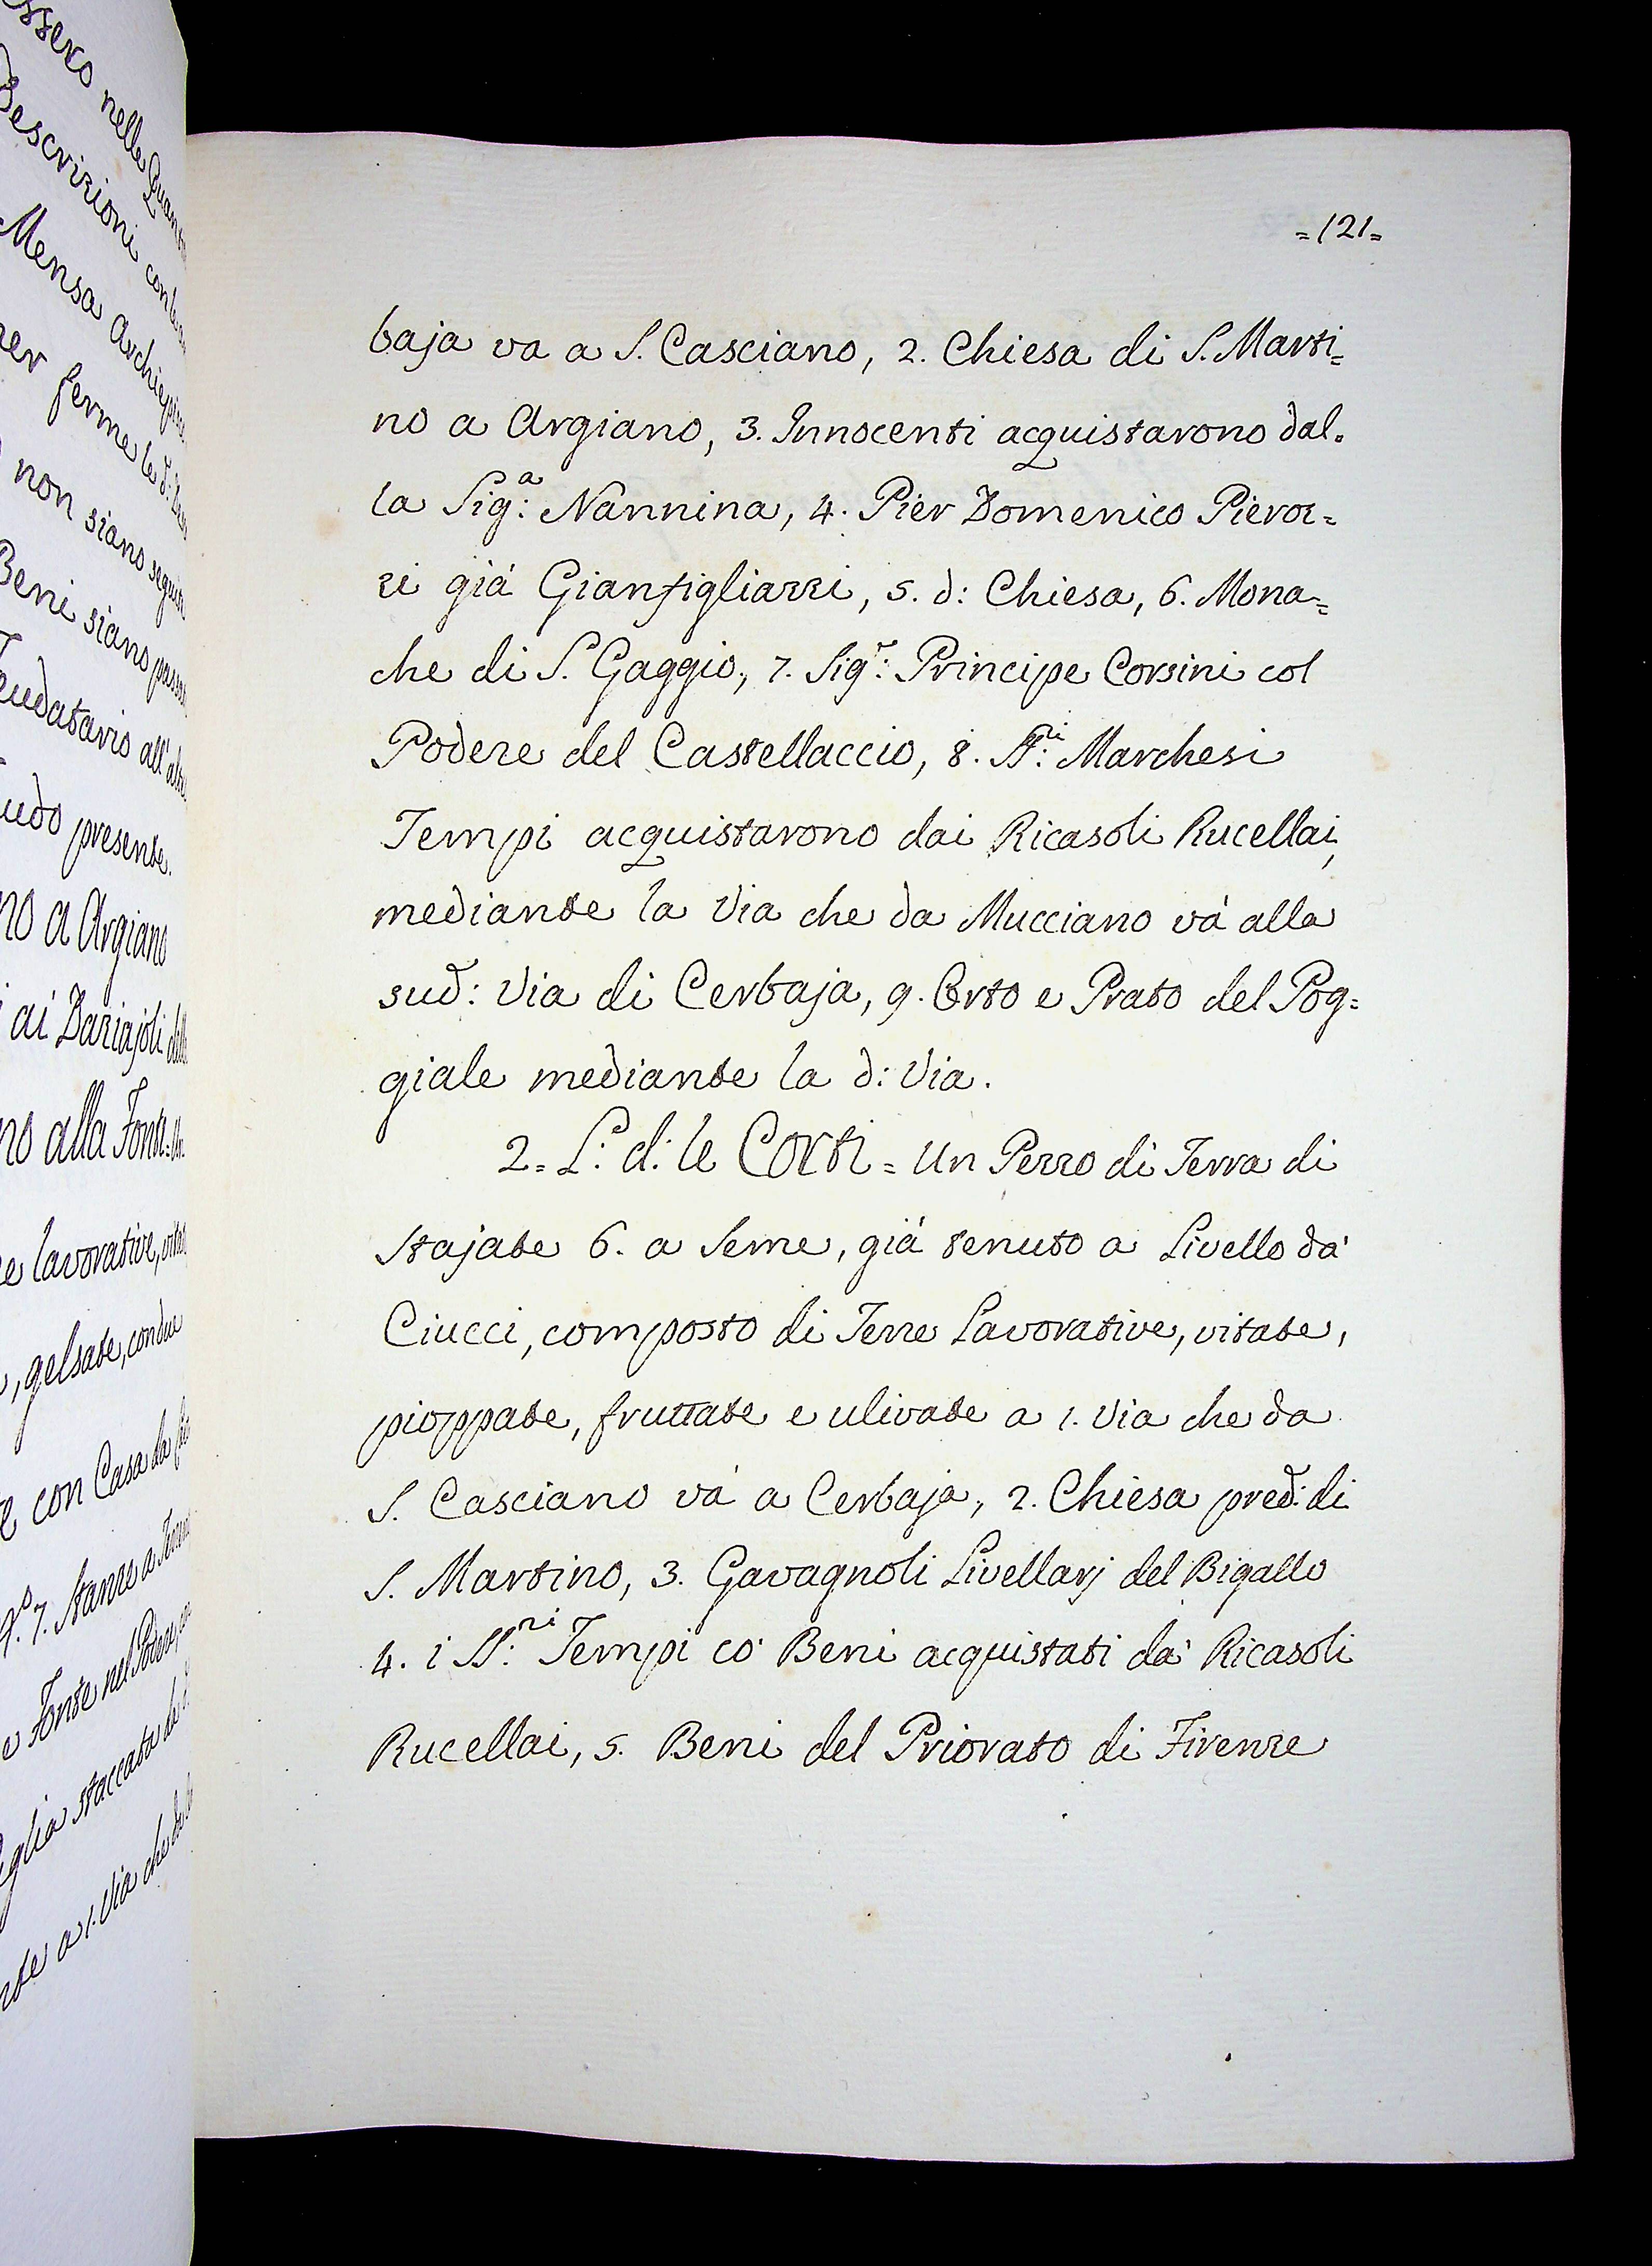 ssero nelle
Descrizioni con le
Mensa Archiepis
per ferme le d:
non siano seguit
Beni siano
Feudatario all'
eudo presente.
no a Argiano
ai Bariajoli
no alla Fonte
e lavorative,
, gelsate, con due
e con Casa da
N.º 7. Stanze a
e Fonte nel Podere,
iglia staccata da
nte a 1. Via che da
=121=
baja va a S. Casciano, 2. Chiesa di S. Marti=
no a Argiano, 3. Innocenti acquistarono dal=
la Sig.ª: Nannina, 4. Pier Domenico Pieroz=
zi giá Gianfigliazzi, 5. d: Chiesa, 6. Mona=
che di S. Gaggio, 7. Sig.r: Principe Corsini col
Podere del Castellaccio, 8. SS.ri: Marchesi
Tempi acquistarono dai Ricasoli Rucellai,
mediante la Via che da Mucciano vá alla
sud: Via di Cerbaja, 9. Orto e Prato del Pog=
giale mediante la d: Via.
2. = L: d: le Corti = Un Pezzo di Terra di
Stajate 6. a Seme, giá tenuto a Livello da'
Ciucci, composto di Terre Lavorative, vitate,
pioppate, fruttate e ulivate a 1. Via che da
S. Casciano vá a Cerbaja, 2. Chiesa pred: di
S. Martino, 3. Gavagnoli Livellarj del Bigallo
4. i SS.ri: Tempi co' Beni acquistati da' Ricasoli
Rucellai, 5. Beni del Priorato di Firenze